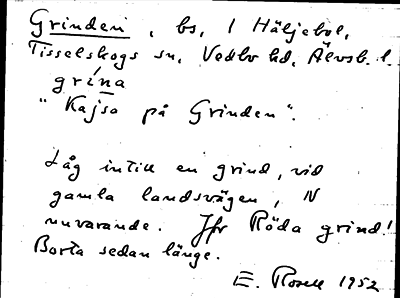 Grinden, bs, 1 Häljebol,
Tisselskogs sn, Vedbo hd, Älvsb. l.
grína
"Kajsa på Grinden".
Låg intill en grind, vid
gamla landsvägen, N
nuvarande. Jfr Röda grind!
Borta sedan länge.
E. Rosell 1952